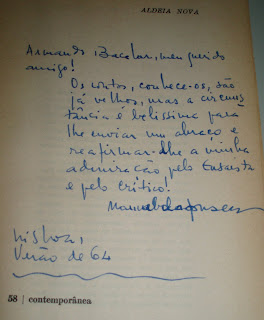 ALDEIA NOVA
Armando Bacelar, meu querido
amigo!
Os contos, conhece-os, são
já velhos, mas a circuns
tância é belíssima para
lhe enviar um abraço e
reafirmar-lhe a minha
admiração pelo Ensaísta
e pelo Crítico!
Manuel da Fonseca
Lisboa,
Verão de 64
58 | contemporânea